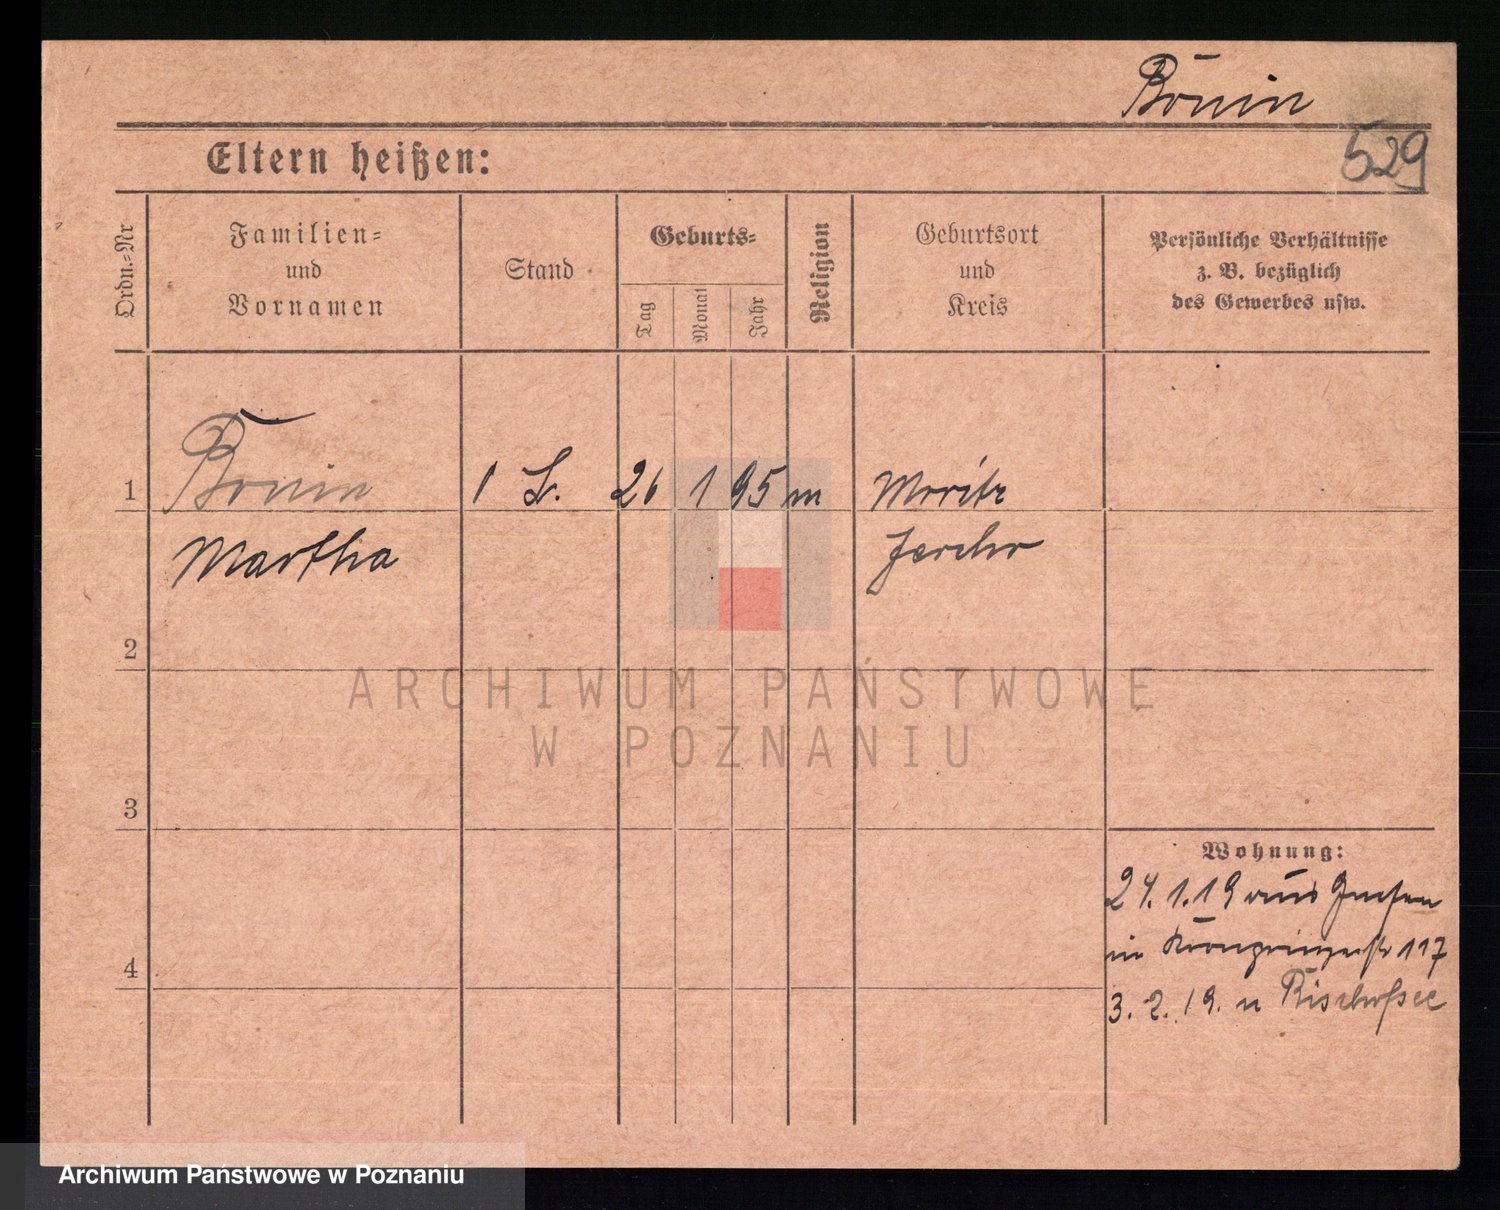 Bönin
529
Eltern heißen:
Ordn.-Nr
Familien-
und
Vornamen
Stand
Geburts-
Tag
Monat
Jahr
Religion
Geburtsort
und
Kreis
Persönliche Verhältnisse
z. B. bezüglich
des Gewerbes usw.
1 Bönin 26 1 95 m Moritz
Martha
2
ARCHIWUM PAŃSTWOWE
W POZNANIU
3
Wohnung:
24.1.19 aus Gnesen
in Kronprinzenstr 117
4
3.2.19. n Bischofsee
Archiwum Państwowe w Poznaniu